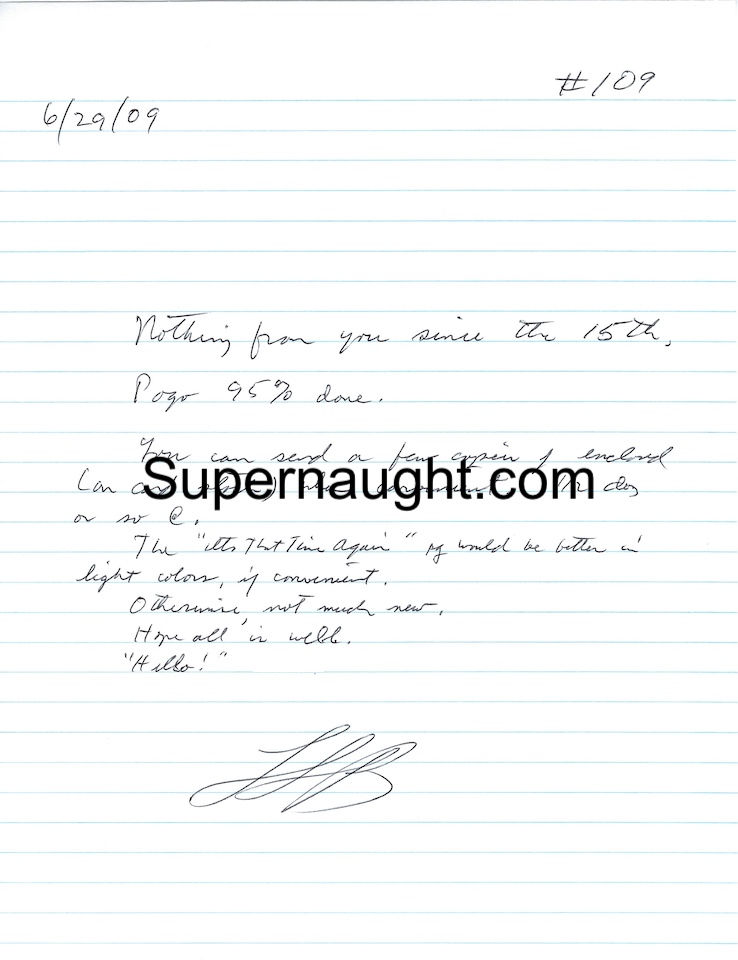 #109
6/29/09
Nothing from you since the 15th.
Pogo 95% done.
You can send a few copies of enclosed
Supernaught.com
or so @.
The "It's That Time Again" pg would be better in
light colors, if convenient.
Otherwise, not much new.
Hope all is well.
"Hello!"